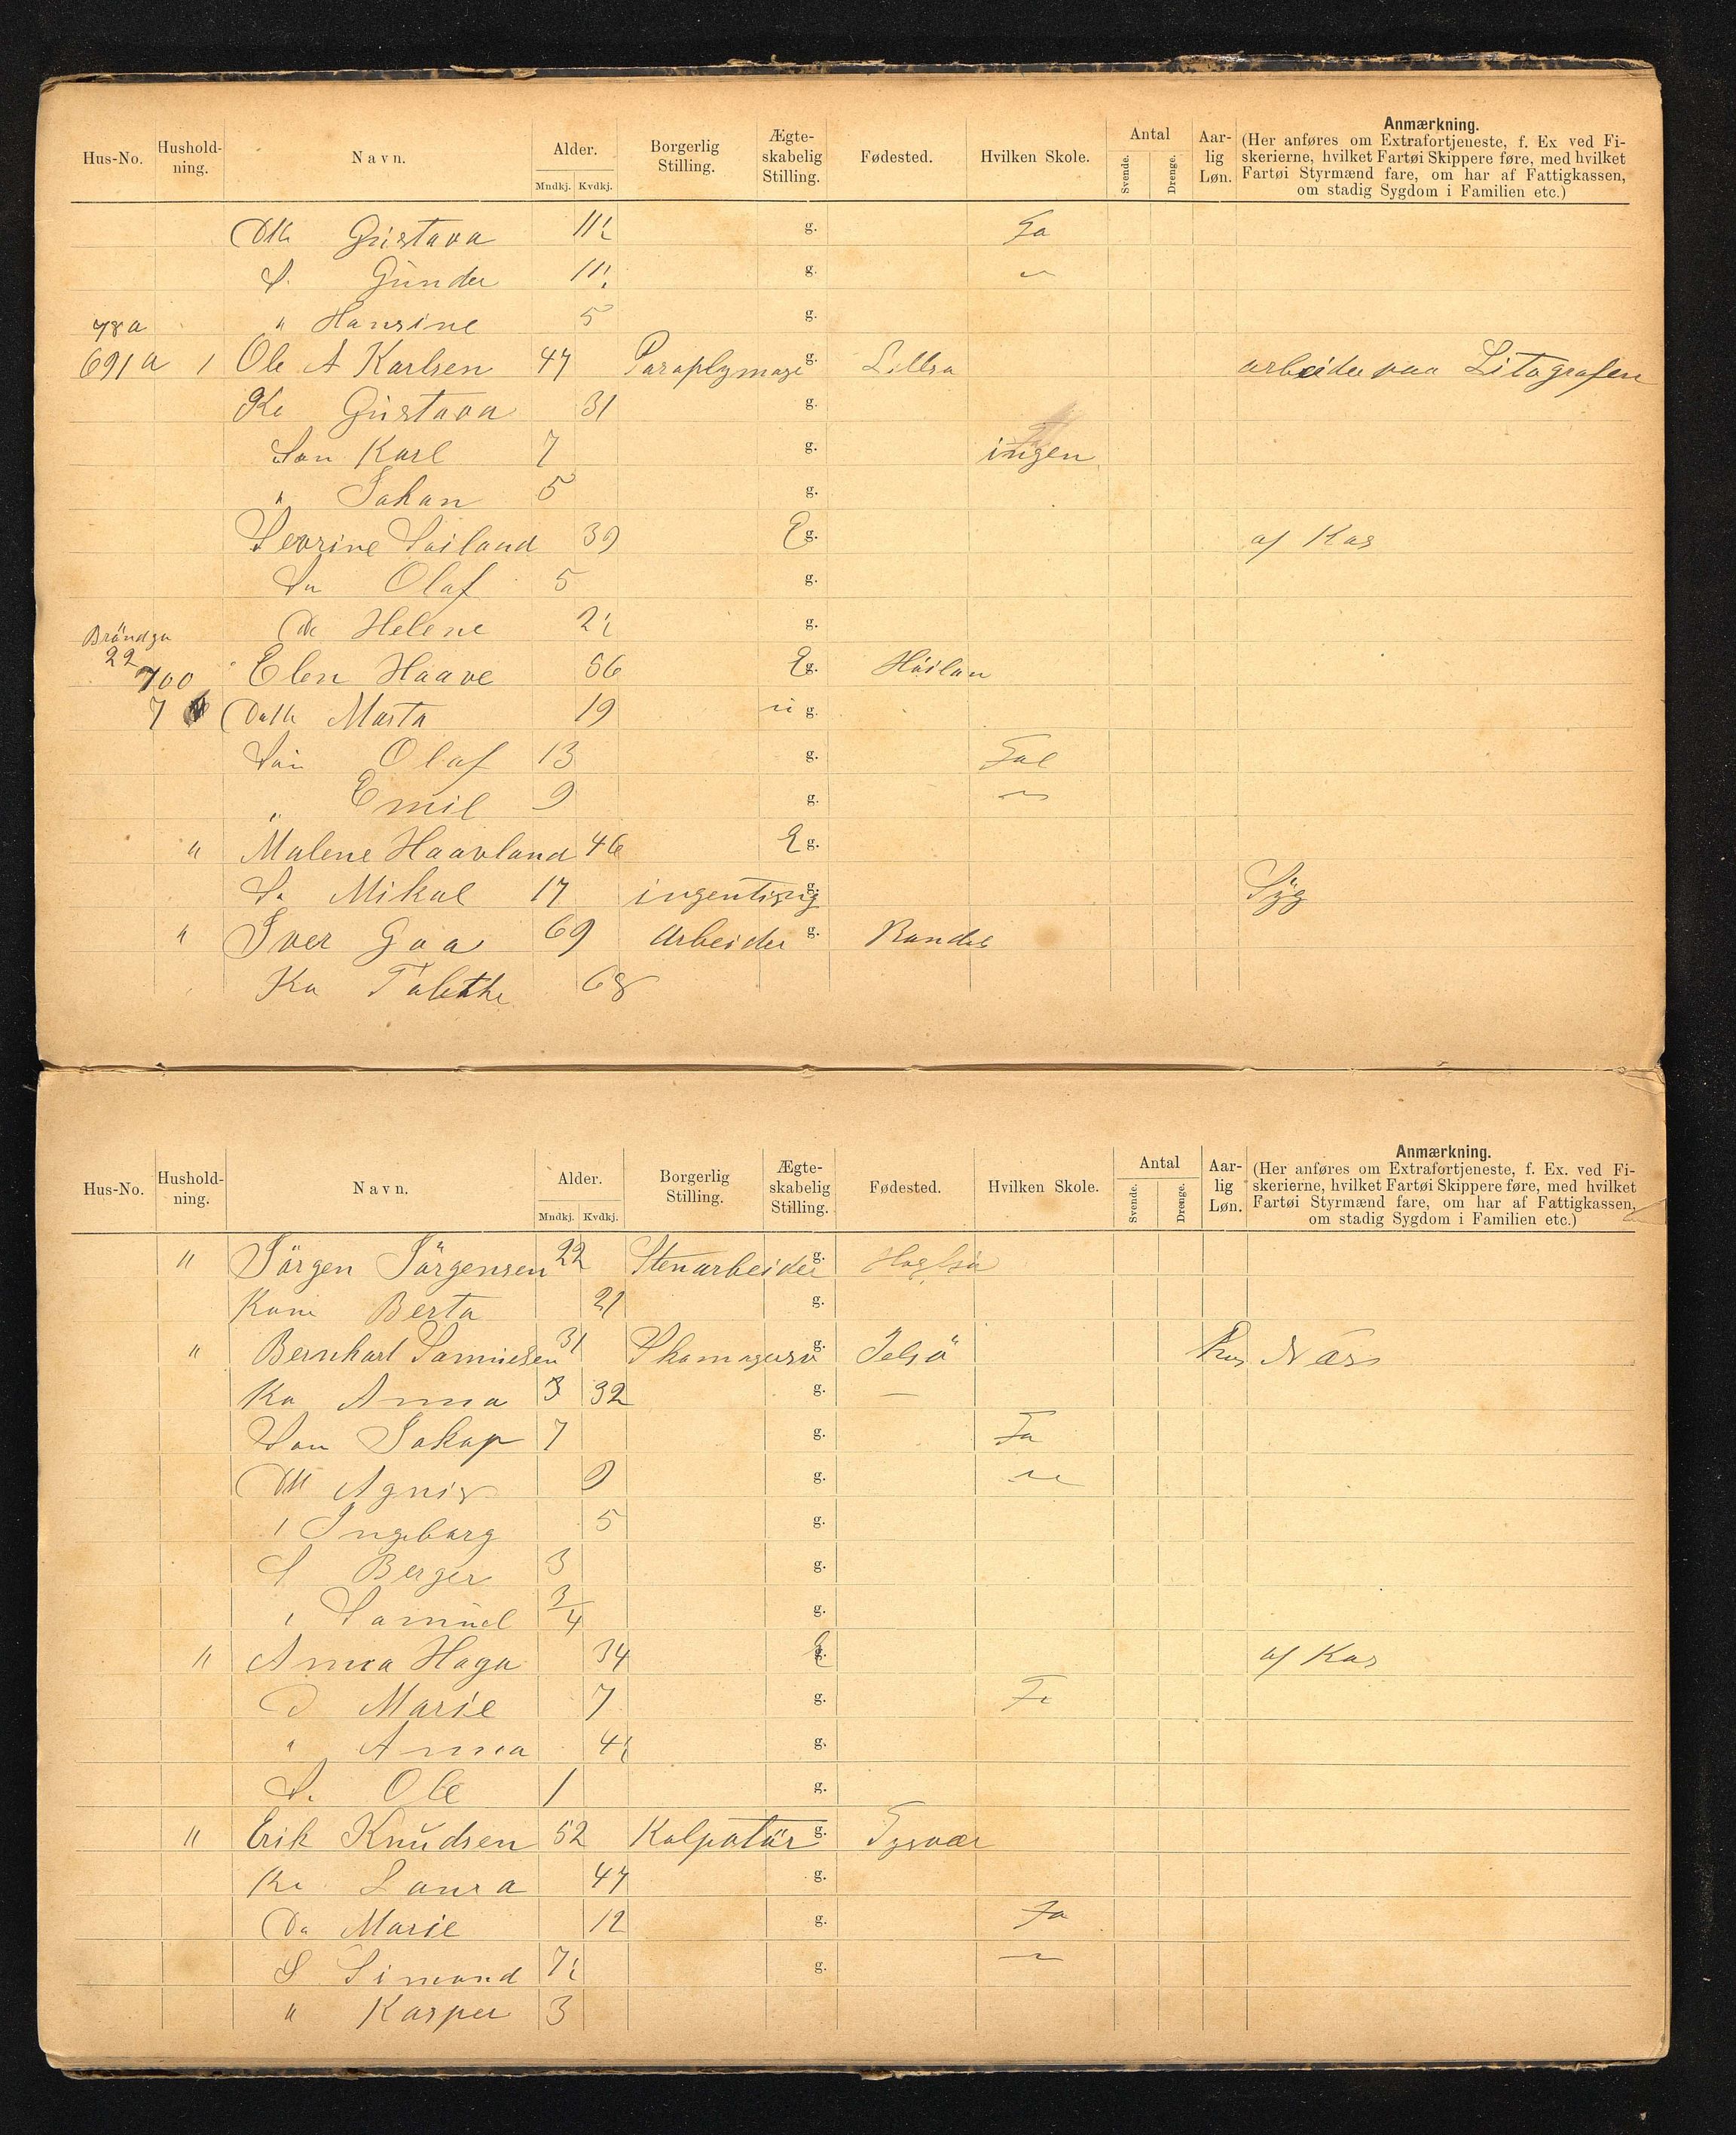 Hus-No. Hushold-ning. Navn. Alder. Mndkj. Kvdkj. Borgerlig Stilling. Ægte-skabelig Stilling. Fødested. Hvilken Skole. Antal Svende. Drenge. Aar-lig Løn. Anmærkning.
(Her anføres om Extrafortjeneste, f. Ex ved Fi-
skerierne, hvilket Fartøi Skippere føre, med hvilket
Fartøi Styrmænd fare, om har af Fattigkassen,
om stadig Sygdom i Familien etc.)
Dtt Gustava 11½ g. Fa
S. Gunder g. "
78a " Hansine 5 g.
691 a 1 Ole A Karlsen 47 g. Lillsa arbeider paa Litografen
Ko Gustava 31 g.
Søn Karl 7 g. ingen
" Johan 5 g.
Sevrine 39 Eg. af Kas
Sø Olaf 5 g.
Da Helene 2½ g.
Brøndga
22
700 Elen Haave 56 Eg. Høilan
7 Datt Marta 19 ug.
Søn Olaf 13 g. Fol
" Emil 9 g. "
" Malene Haavland 46 Eg.
Sø Mikal 17 ingenting g. Syg
" Iver Gaa 69 Arbeider g. Randa
Ko 68
Hus-No. Hushold-ning. Navn. Alder. Mndkj. Kvdkj. Borgerlig Stilling. Ægte-skabelig Stilling. Fødested. Hvilken Skole. Antal Svende. Drenge. Aar-lig Løn. Anmærkning.
(Her anføres om Extrafortjeneste, f. Ex. ved Fi-
skerierne, hvilket Fartøi Skippere føre, med hvilket
Fartøi Styrmænd fare, om har af Fattigkassen,
om stadig Sygdom i Familien etc.)
" Jörgen Jörgensen 22 Stenarbeider g.
Kone Berta 21 g.
" Bernhart Samuelsen 31 g. Jelsö hos Næss
Ko Anna 3 32 g. —
Søn Jakop 7 g. Fa
Dtt Agnis 9 g. "
" Ingeborg 5 g.
S Berger 3 g.
" Samuel 3/4 g.
" Anna Haga 34 E g. af Kas
D Marie 7 g. Fo
" Anna 4½ g.
S. Ole 1 g.
" Erik Knudsen 52 Kolpotör g. Tysvær
Ko Laura 47 g.
Da Marie 12 g. Fa
S Simond 7½ g. "
" Kasper 3